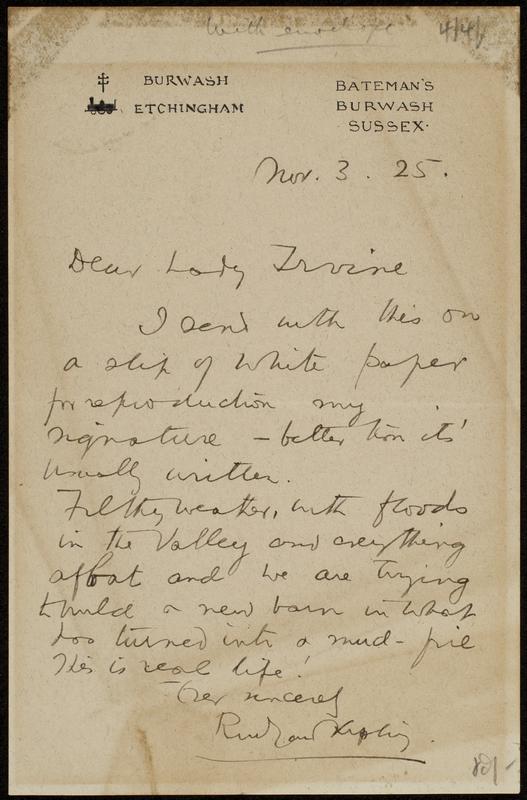 With envelope 4/4/
BURWASH
ETCHINGHAM
BATEMAN'S
BURWASH
SUSSEX.
Nov. 3. 25.
Dear Lady Irvine
I send with this on
a slip of white paper
for reproduction my
signature – better than it's
usually written.
Filthy weather, with floods
in the Valley and everything
afloat and we are trying
to build a new barn in what
has turned into a mud-pie
This is real life!
Ever sincerely
Rudyard Kipling.